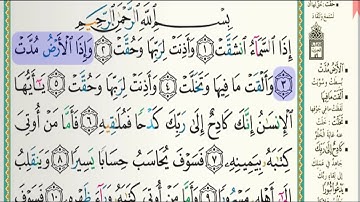 بِسْمِ ٱللَّهِ ٱلرَّحْمَٰنِ ٱلرَّحِيمِ
إِذَا ٱلسَّمَآءُ ٱنشَقَّتْ ١ وَأَذِنَتْ لِرَبِّهَا وَحُقَّتْ ٢ وَإِذَا ٱلْأَرْضُ مُدَّتْ
٣ وَأَلْقَتْ مَا فِيهَا وَتَخَلَّتْ ٤ وَأَذِنَتْ لِرَبِّهَا وَحُقَّتْ ٥ يَٰٓأَيُّهَا
ٱلْإِنسَٰنُ إِنَّكَ كَادِحٌ إِلَىٰ رَبِّكَ كَدْحًا فَمُلَٰقِيهِ ٦ فَأَمَّا مَنْ أُوتِىَ
كِتَٰبَهُۥ بِيَمِينِهِۦ ٧ فَسَوْفَ يُحَاسَبُ حِسَابًا يَسِيرًا ٨ وَيَنقَلِبُ
إِلَىٰٓ أَهْلِهِۦ مَسْرُورًا ٩ وَأَمَّا مَنْ أُوتِىَ كِتَٰبَهُۥ وَرَآءَ ظَهْرِهِۦ ١٠ فَسَوْفَ
ٱلْأَرْضُ مُدَّتْ